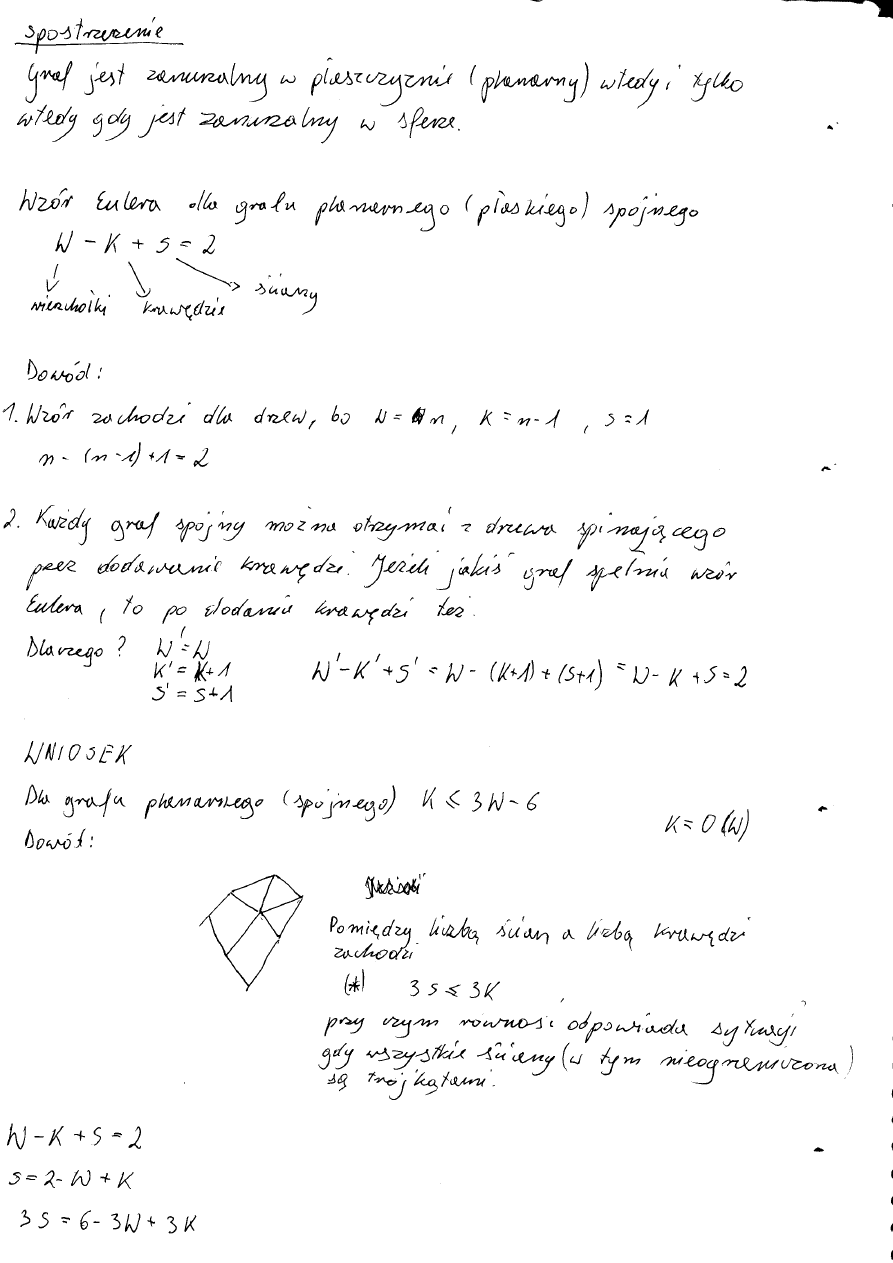 spostrzeżenie
Graf jest zanurzalny w płaszczyźnie (planarny) wtedy i tylko
wtedy gdy jest zanurzalny w sferze.
Wzór Eulera dla grafu planarnego (płaskiego) spójnego
W - K + S = 2
wierzchołki krawędzie ściany
Dowód:
1. Wzór zachodzi dla drzew, bo W = n, K = n-1, S = 1
n - (n-1) + 1 = 2
2. Każdy graf spójny można otrzymać z drzewa spinającego
przez dodawanie krawędzi. Jeżeli jakiś graf spełnia wzór
Eulera, to po dodaniu krawędzi też.
Dlaczego? W' = W
K' = K+1 W' - K' + S' = W - (K+1) + (S+1) = W - K + S = 2
S' = S+1
WNIOSEK
Dla grafu planarnego (spójnego) K ≤ 3W - 6
K = O(W)
Dowód:
Pomiędzy liczbą ścian a liczbą krawędzi
zachodzi
(*) 3S ≤ 3K
przy czym równość odpowiada sytuacji
gdy wszystkie ściany (w tym nieograniczona)
są trójkątami.
W - K + S = 2
S = 2 - W + K
3S = 6 - 3W + 3K